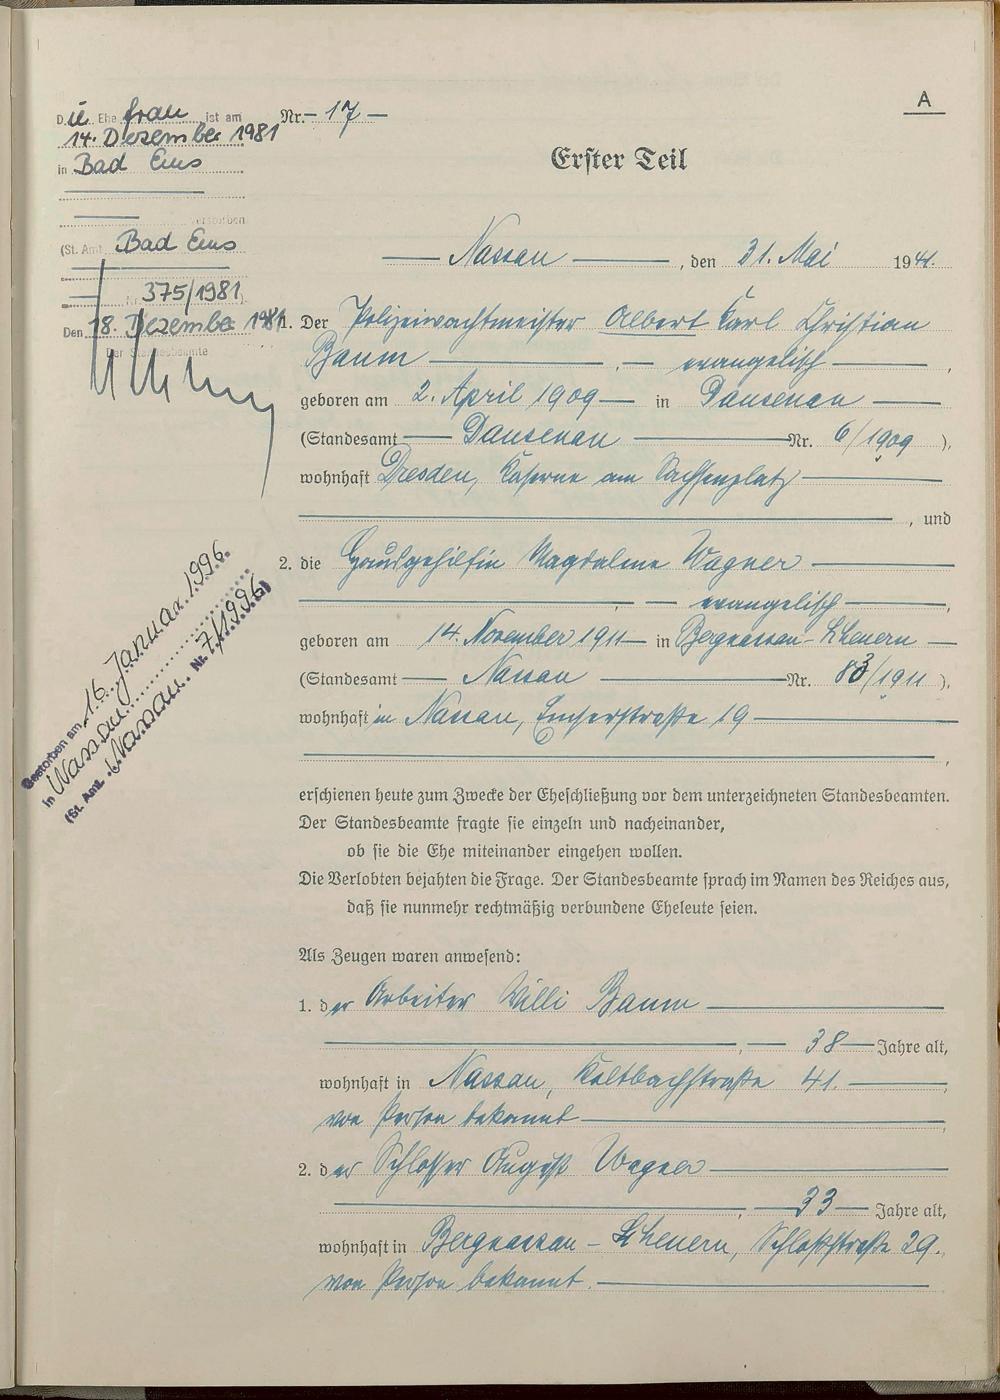 A
Nr. 17
Erster Teil
Die Ehefrau ist am
14. Dezember 1981
in Bad Ems
verstorben
(St. Amt Bad Ems
Nr. 375/1981)
Den 18. Dezember 1981
Der Standesbeamte
Nassau, den 31. Mai 1941.
1. Der Polizeiwachtmeister Albert Karl Christian
Baum, evangelisch,
geboren am 2. April 1909 in Dausenau
(Standesamt Dausenau Nr. 6/1909),
wohnhaft Dresden, Kaserne am Sachsenplatz
, und
2. die Hausgehilfin Magdalene Wagner
, evangelisch,
geboren am 14. November 1911 in Bergnassau-Scheuern
(Standesamt Nassau Nr. 83/1911),
wohnhaft in Nassau, Emserstraße 19
,
Gestorben am 16. Januar 1996
in Nassau
(St. Amt Nassau Nr. 7/1996)
erschienen heute zum Zwecke der Eheschließung vor dem unterzeichneten Standesbeamten.
Der Standesbeamte fragte sie einzeln und nacheinander,
ob sie die Ehe miteinander eingehen wollen.
Die Verlobten bejahten die Frage. Der Standesbeamte sprach im Namen des Reiches aus,
daß sie nunmehr rechtmäßig verbundene Eheleute seien.
Als Zeugen waren anwesend:
1. der Arbeiter Willi Baum
, 38 Jahre alt,
wohnhaft in Nassau, Kaltbachstraße 41.,
von Person bekannt,
2. der Schlosser August Wagner
, 33 Jahre alt,
wohnhaft in Bergnassau-Scheuern, Schloßstraße 29.,
von Person bekannt.